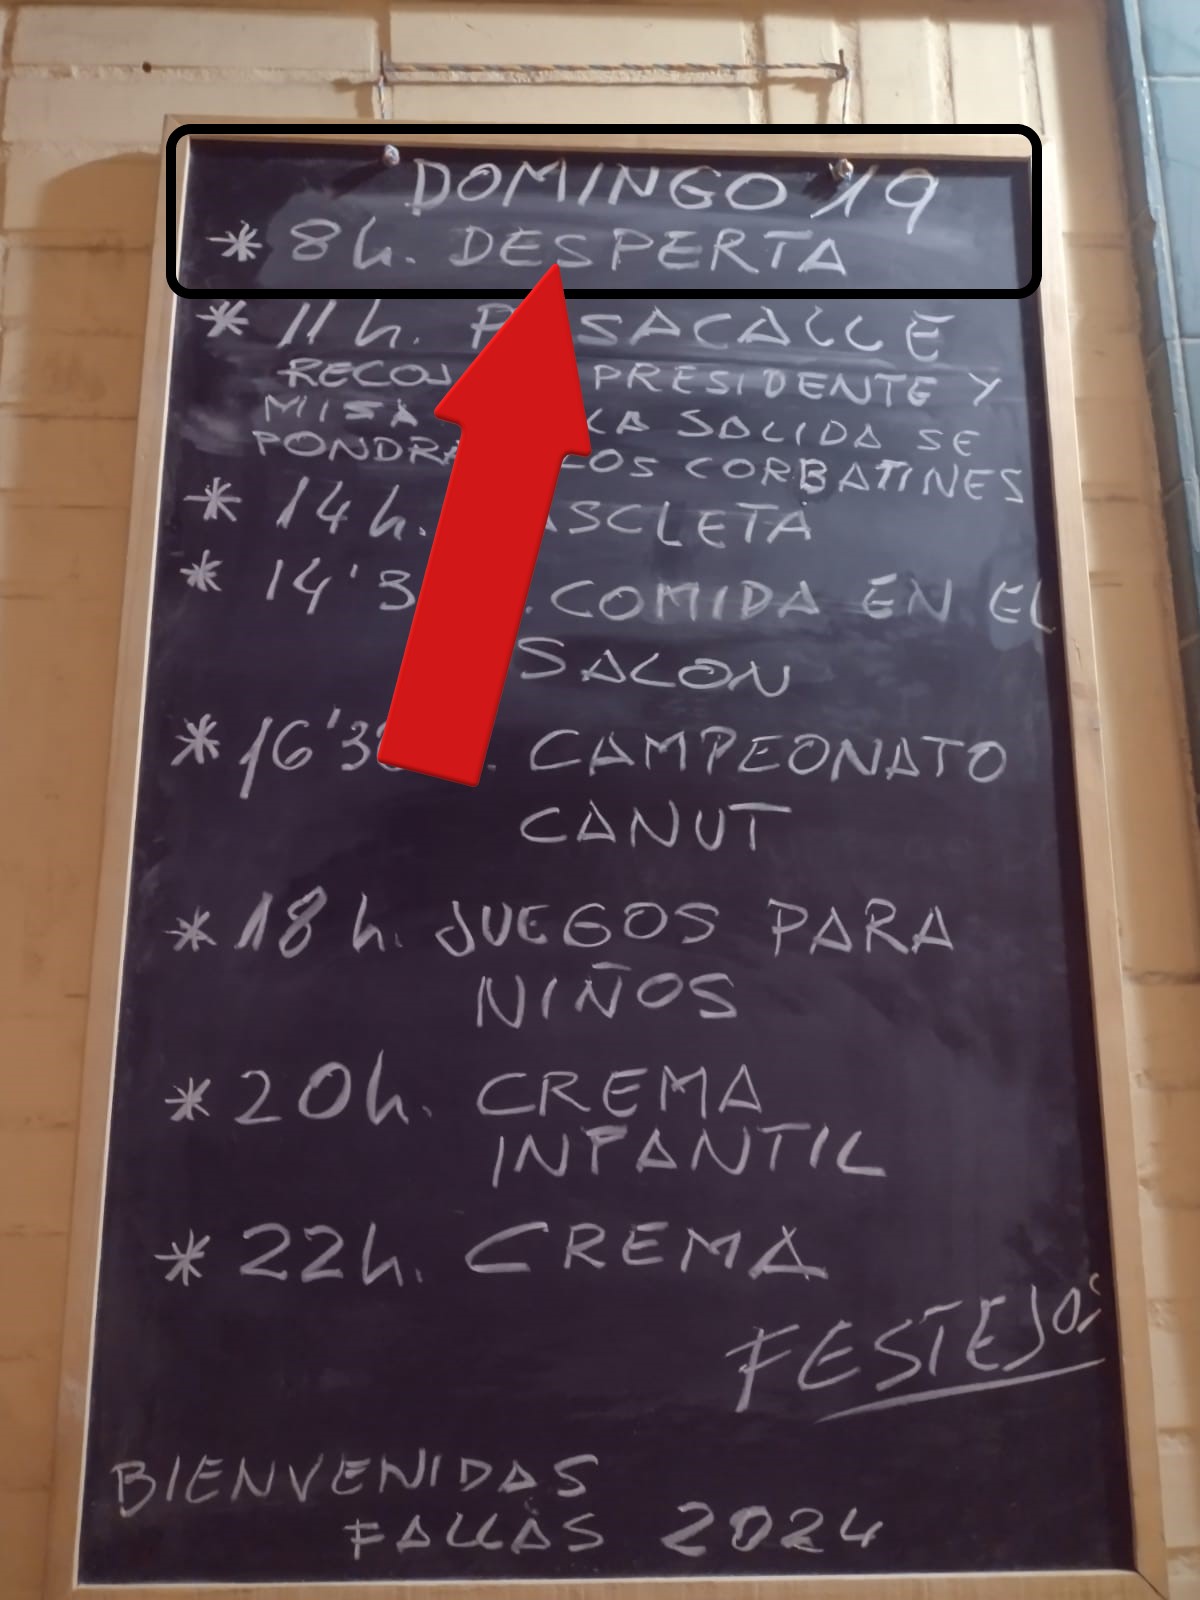 DOMINGO 19
* 8h. DESPERTA
* 11h. PASACALLE
PRESIDENTE Y
MISA LA SALIDA SE
LOS CORBATINES
* 14h. MASCLETA
* 14'3 . COMIDA EN EL
SALON
* 16'30 . CAMPEONATO
CANUT
* 18h. JUEGOS PARA
NIÑOS
* 20h. CREMA
INFANTIL
* 22h. CREMA
FESTEJOS
BIENVENIDAS
FALLAS 2024